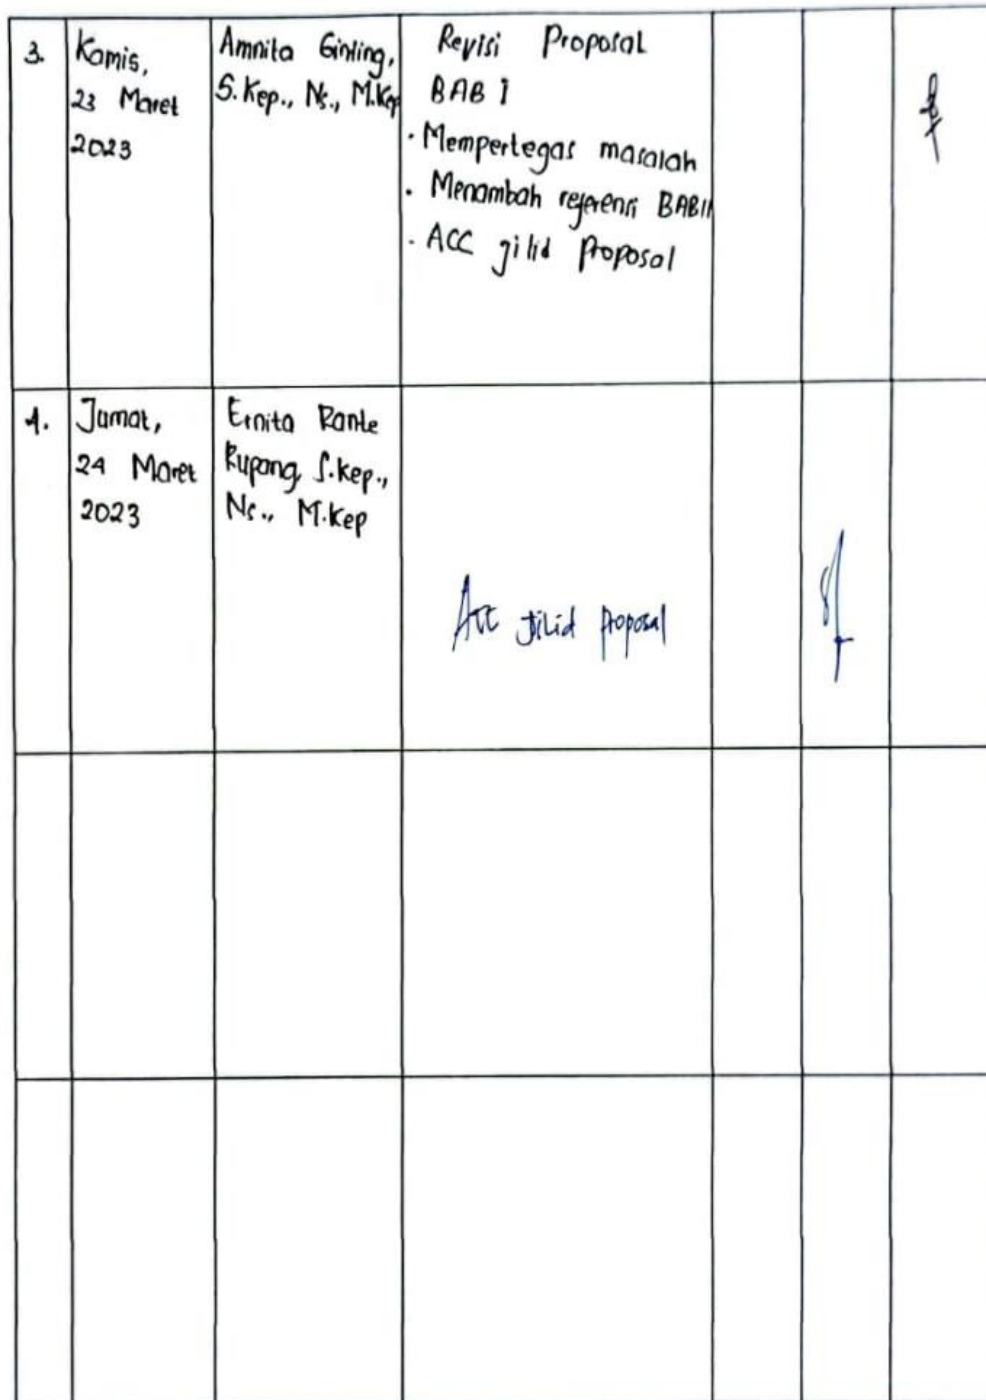 3.
Kamis,
23 Maret
2023
Amnita Ginting,
S.Kep., Ns., M.Kep
Revisi Proposal
BAB I
. Mempertegas masalah
. Menambah referensi BAB II
. ACC jilid Proposal
4.
Jumat,
24 Maret
2023
Ernita Rante
Rupang, S.Kep.,
Ns., M.Kep
Acc Jilid Proposal